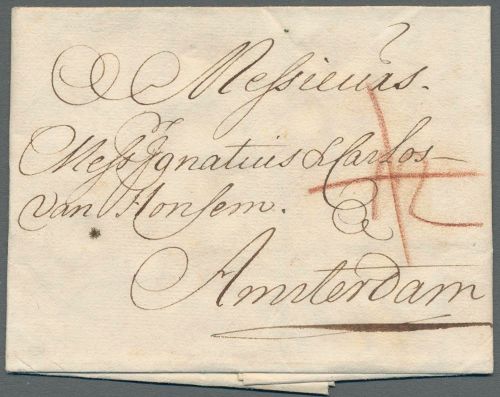 Messieurs.
Messrs Ignatius & Carlos
van Honsem.
Amsterdam